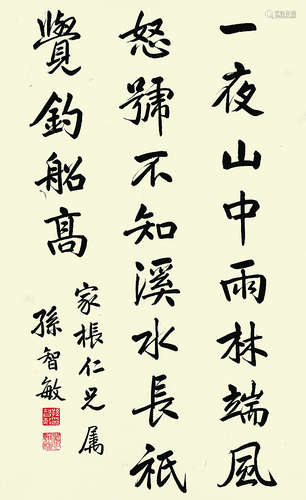 一夜山中雨林端風
怒號不知溪水長祇
覺釣船高
家振仁兄属
孫智敏